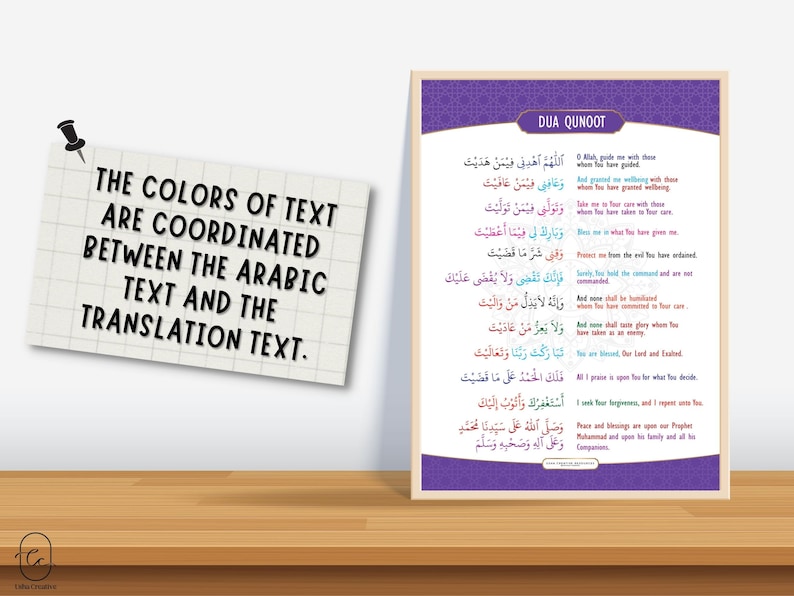 THE COLORS OF TEXT
ARE COORDINATED
BETWEEN THE ARABIC
TEXT AND THE
TRANSLATION TEXT.
DUA QUNOOT
اَللّٰهُمَّ اَهْدِنِي فِيْمَنْ هَدَيْتَ
O Allah, guide me with those
whom You have guided.
وَعَافِنِي فِيْمَنْ عَافَيْتَ
And granted me wellbeing with those
whom You have granted wellbeing.
وَتَوَلَّنِي فِيْمَنْ تَوَلَّيْتَ
Take me to Your care with those
whom You have taken to Your care.
وَبَارِكْ لِي فِيْمَا أَعْطَيْتَ
Bless me in what You have given me.
وَقِنِي شَرَّ مَا قَضَيْتَ
Protect me from the evil You have ordained.
فَإِنَّكَ تَقْضِى وَلاَ يُقْضَى عَلَيْكَ
Surely, You hold the command and are not
commanded.
وَإِنَّهُ لاَيَذِلُّ مَنْ وَالَيْتَ
And none shall be humiliated
whom You have committed to Your care .
وَلاَ يَعِزُّ مَنْ عَادَيْتَ
And none shall taste glory whom You
have taken as an enemy.
تَبَا رَكْتَ رَبَّنَا وَتَعَالَيْتَ
You are blessed, Our Lord and Exalted.
فَلَكَ الْحَمْدُ عَلَى مَا قَضَيْتَ
All I praise is upon You for what You decide.
أَسْتَغْفِرُكَ وَأَتُوْبُ إِلَيْكَ
I seek Your forgiveness, and I repent unto You.
وَصَلَّى اللهُ عَلَى سَيِّدِنَا مُحَمَّدٍ
وَعَلَى آلِهِ وَصَحْبِهِ وَسَلَّمَ
Peace and blessings are upon our Prophet
Muhammad and upon his family and all his
Companions.
Lisha Creative